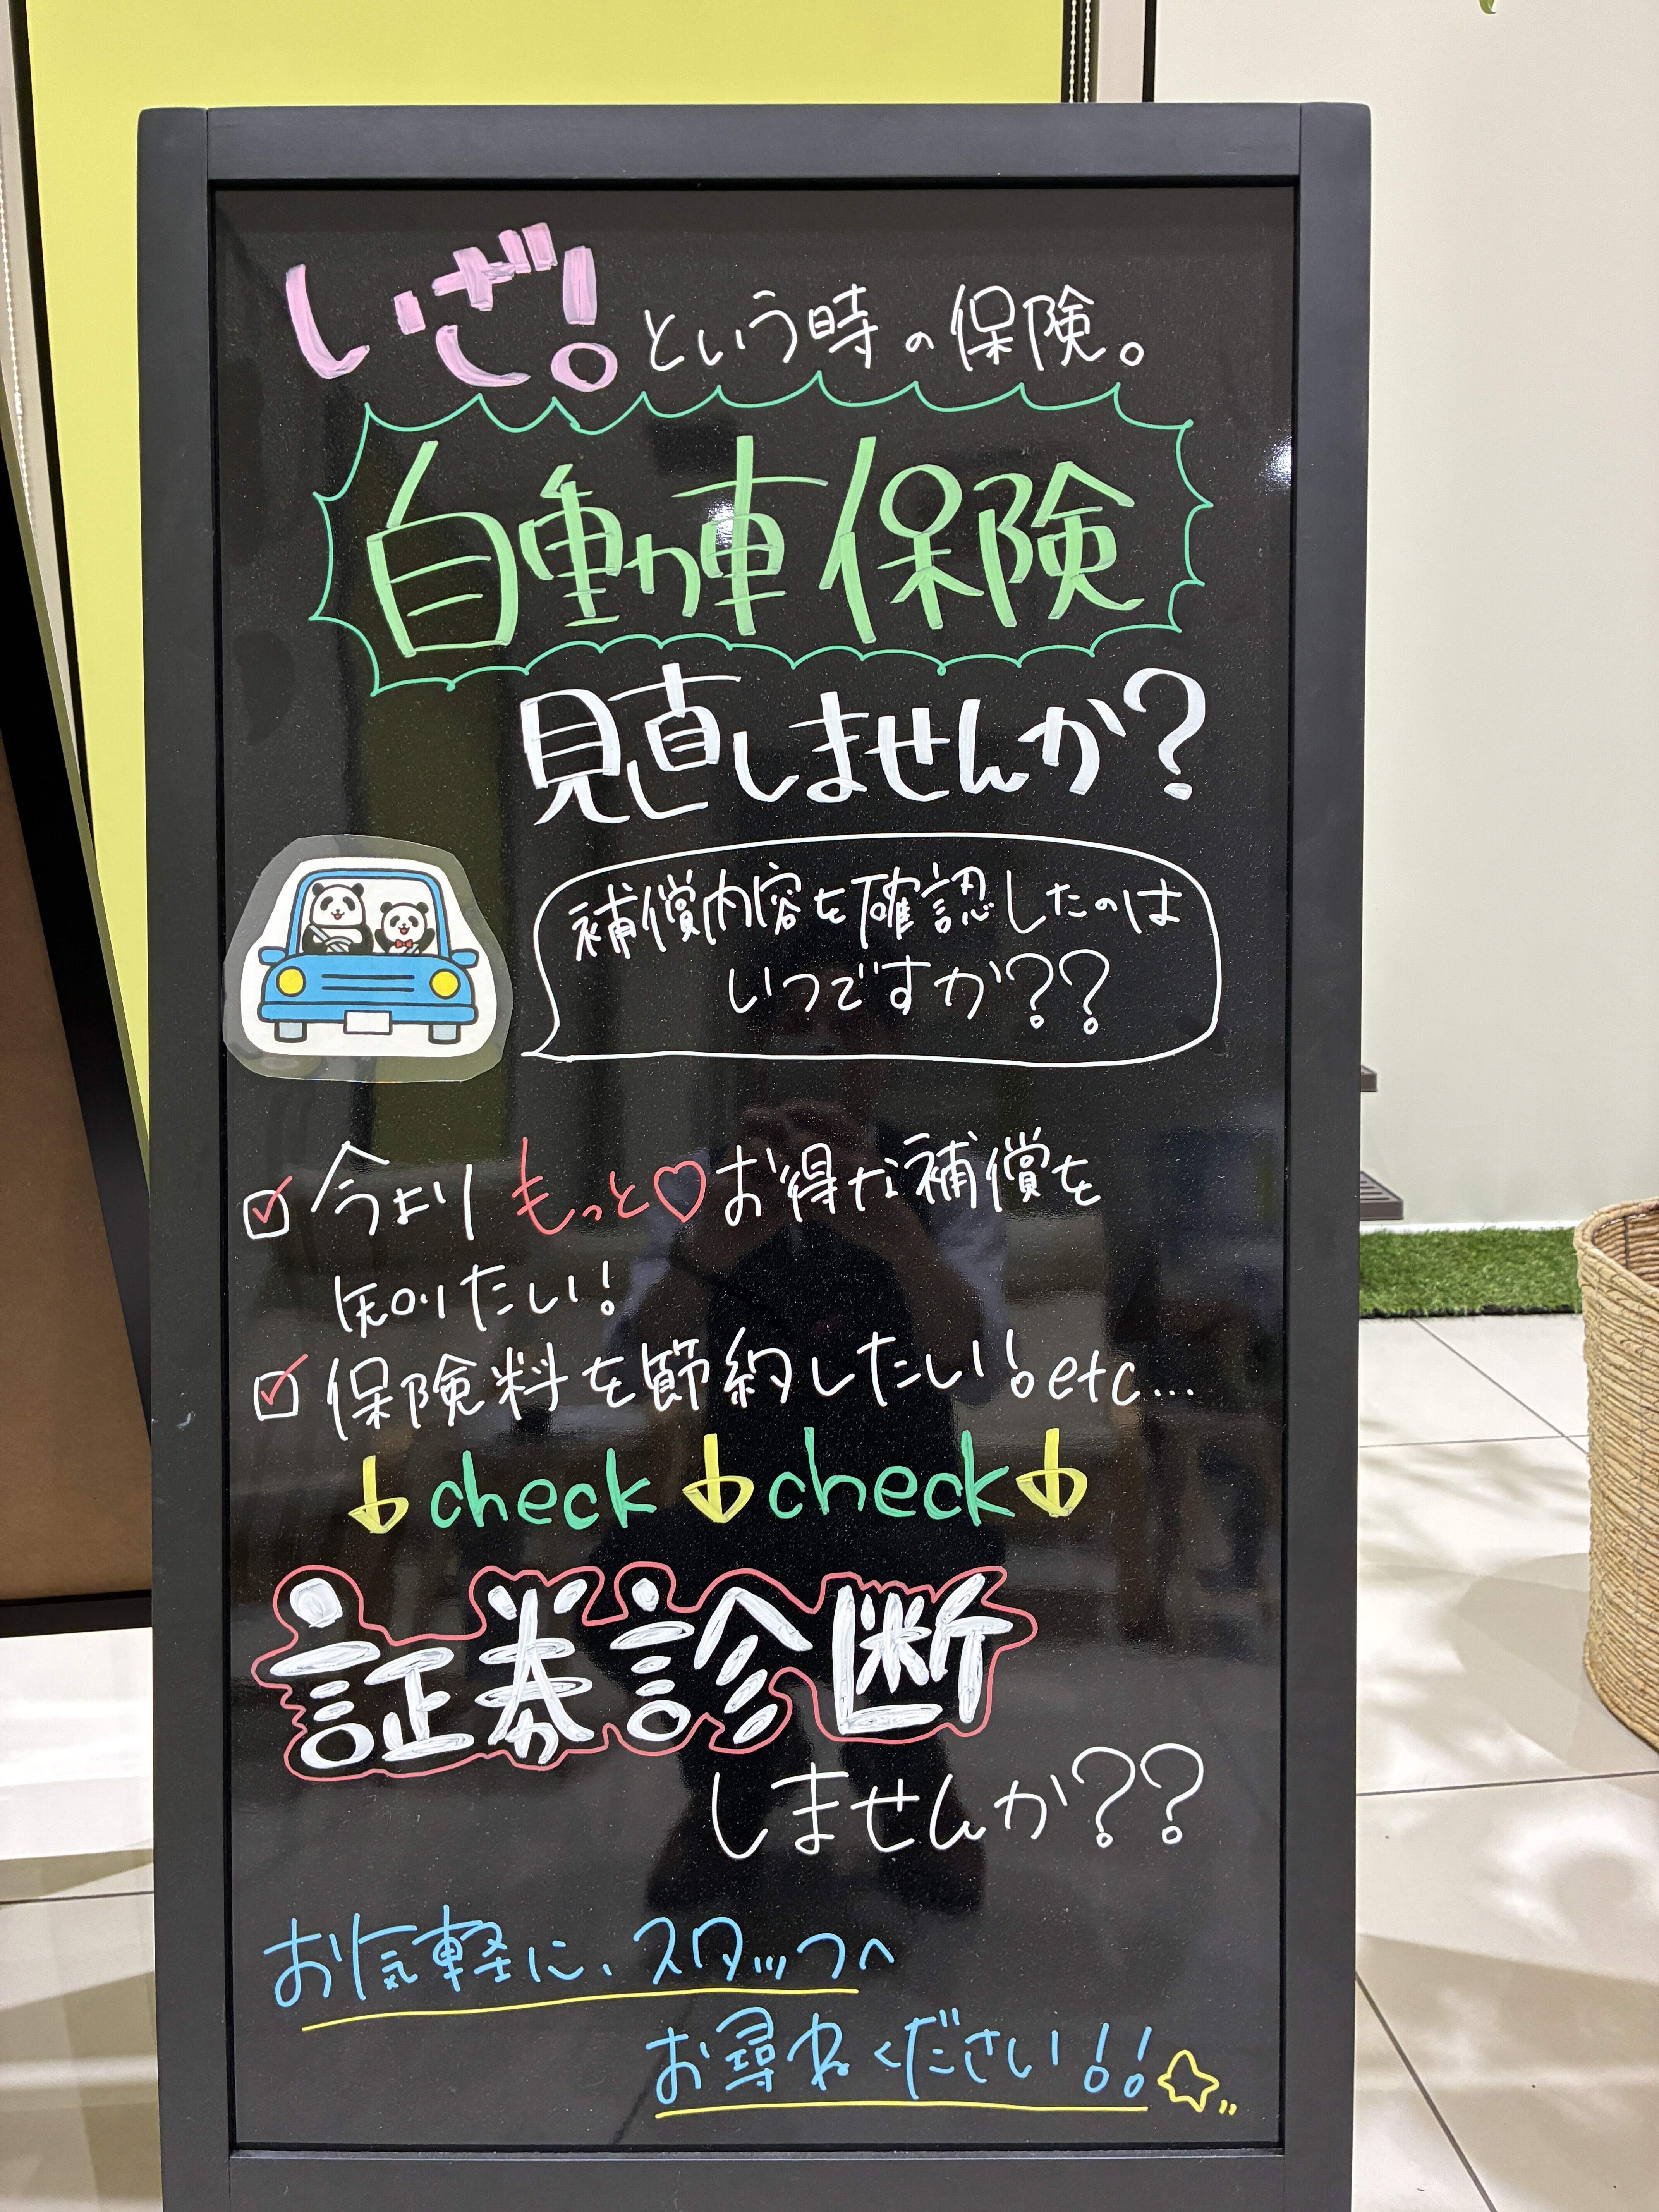 いざ!という時の保険。
自動車保険
見直しませんか?
補償内容を確認したのは
いつですか??
☑今よりもっと♡お得な補償を
知りたい!
☑保険料を節約したい!etc...
↓check↓check↓
証券診断
しませんか??
お気軽に、スタッフへ
お尋ねください!!☆〃